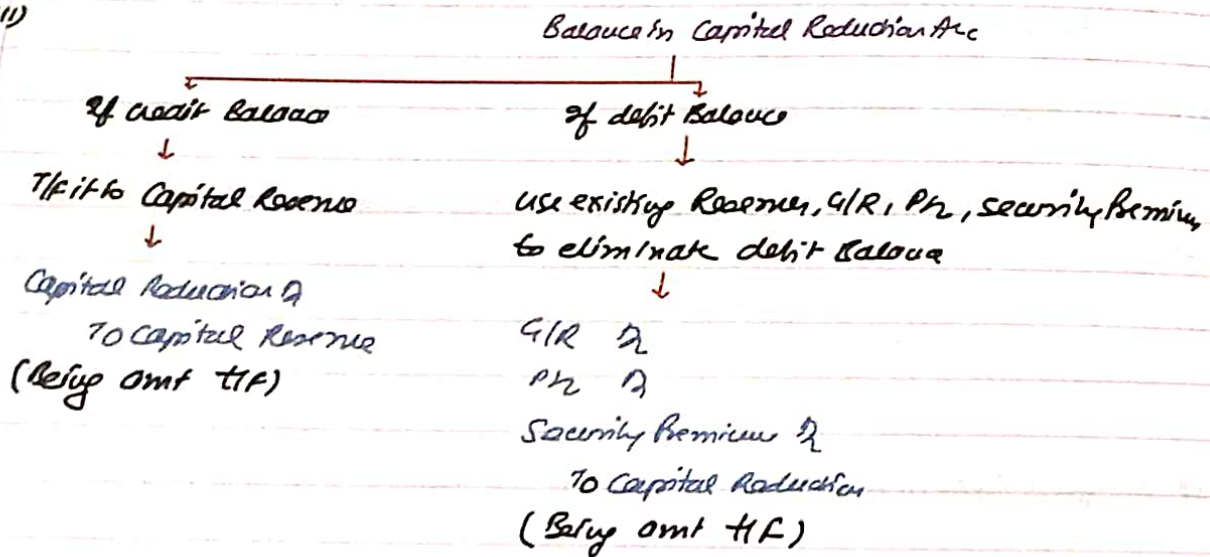 11)
Balance in Capital Reduction A/c
If credit Balance
↓
T/F it to Capital Reserve
↓
Capital Reduction Dr
To Capital Reserve
(Being amt t/f)
If debit Balance
↓
use existing Reserves, G/R, P/L, security Premium
to eliminate debit Balance
↓
G/R Dr
P/L Dr
Security Premium Dr
To Capital Reduction
(Being amt t/f)